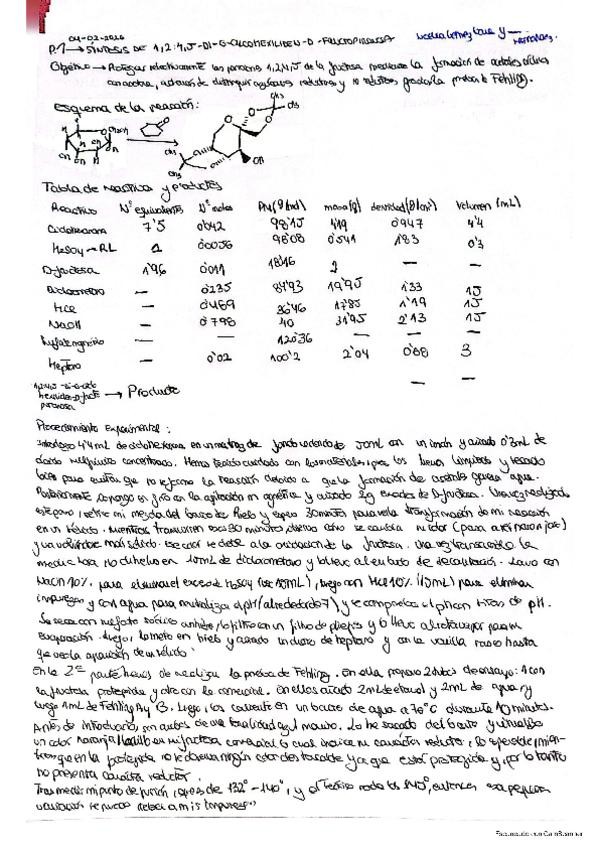 04-02-2026
P.1 → SÍNTESIS DE 1,2:4,5-DI-O-CICLOHEXILIDEN-D-FRUCTOPIRANOSA
Objetivo → Proteger selectivamente las posiciones 1,2,4,5 de la fructosa mediante la formación de acetales cíclicos
con acetona, además de distinguir azúcares reductores y no reductores gracias a la prueba de Fehling.
Esquema de la reacción:
Tabla de reactivos y productos
Reactivo Nº equivalentes Nº moles PM (g/mol) masa (g) densidad (g/cm³) Volumen (mL)
Ciclohexanona 7'5 0'042 98'15 4'19 0'947 4'4
H₂SO₄ → R.L 1 0'0056 98'08 0'541 1'83 0'3
D-fructosa 1'96 0'011 18016 2 — —
Diclorometano — 0'235 84'93 19'95 1'33 15
HCl — 0'489 36'46 17'85 1'19 15
NaOH — 0'798 40 31'95 2'13 15
Sulfato magnésico — 120'36 — — —
Heptano — 0'02 100'2 2'04 0'68 3
→ Producto — —
Procedimiento experimental:
Introduzco 4'4 mL de ciclohexanona en un matraz de fondo redondo de 50mL con un imán y añado 0'3 mL de
ácido sulfúrico concentrado. Hemos tenido cuidado con los materiales, pues los hemos limpiado y secado
bien para evitar que no se forme la reacción debido a que la formación de acetales genera agua.
Posteriormente, lo pongo en frío en la agitación magnética y añado 2g exactos de D-fructosa. Una vez
esto, retiro mi mezcla del baño de hielo y espero 30 minutos para ver la transformación de mi reacción
en un sólido. Mientras transcurren esos 30 minutos, observo cómo se cambia su color (para a naranja)
y va volviéndose más sólido. Ese color se debe a la oxidación de la fructosa. Una vez transcurrido la
media hora lo diluyo en 15mL de diclorometano y lo llevo al embudo de decantación. Lavo con
NaOH 10% para eliminar el exceso de H₂SO₄ (use 15mL), luego con HCl 10% (15mL) para eliminar
impurezas y con agua para neutralizar el pH (alrededor de 7), y se comprueba el pH con tiras de pH.
Se seca con sulfato sódico anhidro, lo filtro en un filtro de pliegues y lo llevo al rotavapor para su
evaporación. Luego, lo meto en hielo y añado un chorro de heptano y con la varilla rasco hasta
que vea la aparición de un sólido.
En la 2ª parte hemos de realizar la prueba de Fehling. En ella preparo 2 tubos de ensayo: 1 con
la fructosa protegida y otro con la comercial. En ellos añado 2mL de etanol y 2mL de agua y
luego 1mL de Fehling A y B. Luego, los caliento en un baño de agua a 70°C durante 10 minutos.
Antes de introducirlo, son ambos de una tonalidad azul marino. Lo he sacado del baño y
un color naranja en mi fructosa comercial lo cual indica su carácter reductor, lo esperable, mien-
tras que en la protegida no se observa ningún color destacable ya que está protegida y por lo tanto
no presenta carácter reductor.
Tras medir mi punto de fusión, oscila de 132°-140°, y el teórico ronda los 140°, entonces esa pequeña
variación se puede deber a mis impurezas
Escaneado con CamScanner